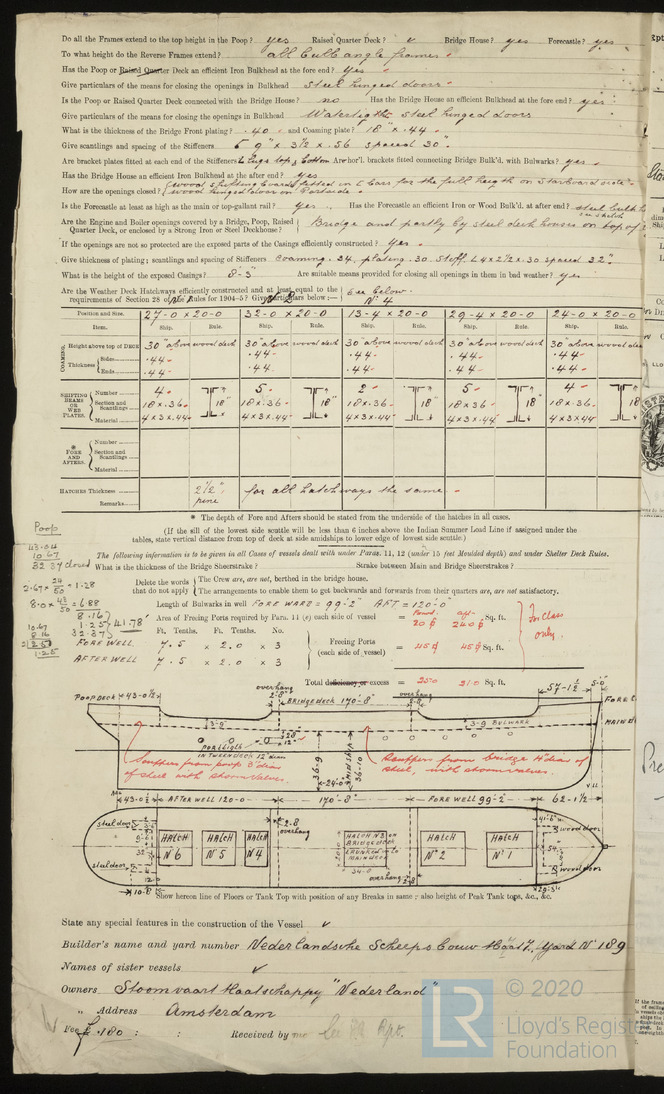 Do all the Frames extend to the top height in the Poop? yes Raised Quarter Deck? Bridge House? yes Forecastle? yes
To what height do the Reverse Frames extend? all bulb angle frames
Has the Poop or Raised Quarter Deck an efficient Iron Bulkhead at the fore end? yes
Give particulars of the means for closing the openings in Bulkhead Steel hinged doors
Is the Poop or Raised Quarter Deck connected with the Bridge House? no Has the Bridge House an efficient Bulkhead at the fore end? yes
Give particulars of the means for closing the openings in Bulkhead Watertight steel hinged doors
What is the thickness of the Bridge Front plating? .40 and Coaming plate? 18" x .44
Give scantlings and spacing of the Stiffeners 9" x 3½ x .56 spaced 30"
Are bracket plates fitted at each end of the Stiffeners Lugs top & bottom Are hor'l. brackets fitted connecting Bridge Bulk'd. with Bulwarks? yes
Has the Bridge House an efficient Iron Bulkhead at the after end? yes
How are the openings closed? wood shifting boards fitted in bars for the full height on Starboard side
wood hinged door on Portside
Is the Forecastle at least as high as the main or top-gallant rail? yes Has the Forecastle an efficient Iron or Wood Bulk'd. at after end? steel
Are the Engine and Boiler openings covered by a Bridge, Poop, Raised Quarter Deck, or enclosed by a Strong Iron or Steel Deckhouse? Bridge and partly by steel deck house on top of
If the openings are not so protected are the exposed parts of the Casings efficiently constructed? yes
Give thickness of plating; scantlings and spacing of Stiffeners Coaming .34. plating .30. Stiff. L 4 x 2½ x .30 spaced 32"
What is the height of the exposed Casings? 8-3" Are suitable means provided for closing all openings in them in bad weather? yes
Are the Weather Deck Hatchways efficiently constructed and at least equal to the requirements of Section 28 of the Rules for 1904-5? Give particulars below:— See below.
Nº 2 Nº 4
Position and Size. 27-0 x 20-0 32-0 x 20-0 13-4 x 20-0 29-4 x 20-0 24-0 x 20-0
Item. Ship. Rule. Ship. Rule. Ship. Rule. Ship. Rule. Ship. Rule.
COAMING. Height above top of DECK 30" above wood deck 30" above wood deck 30" above wood deck 30" above wood deck 30" above wood deck
Thickness Sides .44 .44 .44 .44 .44
Ends .44 .44 .44 .44 .44
SHIPTING BEAMS OR WEB PLATES. Number 4 5 2 5 4
Section and Scantlings 18 x .36 18" 18 x .36 18" 18 x .36 18" 18 x 36 18" 18 x .36 18
Material 4 x 3 x .44 4 x 3 x .44 4 x 3 x .44 4 x 3 x .44 4 x 3 x .44
* FORE AND AFTERS. Number
Section and Scantlings
Material
HATCHES Thickness 2½" for all hatchways the same
Remarks pine
* The depth of Fore and Afters should be stated from the underside of the hatches in all cases.
(If the sill of the lowest side scuttle will be less than 6 inches above the Indian Summer Load Line if assigned under the
tables, state vertical distance from top of deck at side amidships to lower edge of lowest side scuttle:)
The following information is to be given in all Cases of vessels dealt with under Paras. 11, 12 (under 15 feet Moulded depth) and under Shelter Deck Rules.
What is the thickness of the Bridge Sheerstrake? Strake between Main and Bridge Sheerstrakes?
Poop
43.04
10.67
32.37 closed
2.67 x 24/50 = 1.28
8.0 x 43/50 = 6.88
8.16
1.25
32.37
41.78
10.67
8.16
1.25
Delete the words that do not apply The Crew are, are not, berthed in the bridge house.
The arrangements to enable them to get backwards and forwards from their quarters are, are not satisfactory.
Length of Bulwarks in well FOREWARD = 99'-2" AFT = 120'-0"
Area of Freeing Ports required by Para. 11 (e) each side of vessel = Forwd. 20 aft. 24 Sq. ft.
Ft. Tenths. Ft. Tenths. No.
FOREWELL 7.5 x 2.0 x 3
AFTERWELL 7.5 x 2.0 x 3
Freeing Ports (each side of vessel) = 45 45 Sq. ft.
For class only.
Total deficiency or excess = 25.0 21.0 Sq. ft.
POOPDECK 43-0½ overhang 2'-8" BRIDGEDECK 170'-8" overhang 57-1½ 5-0 FORE
3-9" 3-9 BULWARK MAIN
PORTLIGTH IN TWEENDECK 12" diam
Scuppers from poop 3" diar of steel with stormvalves.
36-9 24-0 MIDSHIP 36-10
Scuppers from bridge 4" diar of steel, with stormvalves.
43-0½ AFTERWELL 120-0 170'-8" FOREWELL 99'-2" 62-1½
steeldoor HATCH Nº 6 HATCH Nº 5 HATCH Nº 4 2-8 overhang HATCH Nº 3 on BRIDGEDECK TRUNKED to MAINDECK HATCH Nº 2 HATCH Nº 1 wooddoor
steeldoor overhang 2-8" wooddoor
10-8
Show hereon line of Floors or Tank Top with position of any Breaks in same; also height of Peak Tank tops, &c., &c.
State any special features in the construction of the Vessel
Builder's name and yard number Nederlandsche Scheepsbouw Maats., Yard Nº 189
Names of sister vessels
Owners Stoomvaart Maatschappy "Nederland"
„ Address Amsterdam
Fee £ .180 : : Received by me
© 2020
LR
Lloyd's Register
Foundation